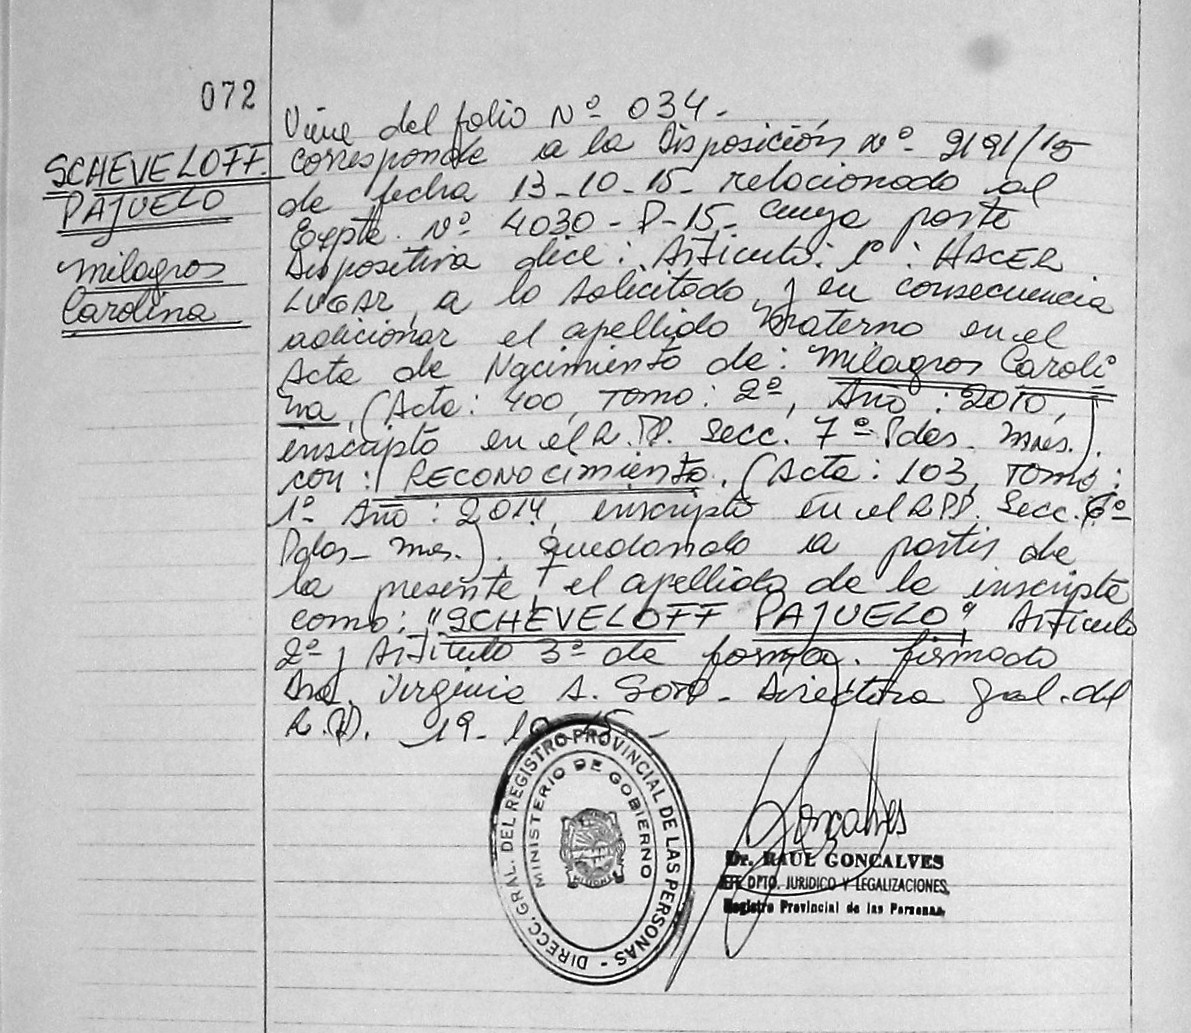 072
SCHEVELOFF
PAJUELO
Milagros
Carolina
Viene del folio Nº 034.-
Corresponde a la Disposición Nº 2191/15
de fecha 13-10-15- relacionado al
Expte. Nº 4030-P-15- cuya parte
Dispositiva dice: Artículo: 1º: HACER
LUGAR, a lo solicitado y en consecuencia
adicionar el apellido Materno en el
Acta de Nacimiento de: Milagros Caroli
na, (Acta: 400, Tomo: 2º, Año: 2010,
inscripto en el R.P.P. Secc. 7º Pdas. Mnes.).
con: RECONOCIMIENTO. (Acta: 103, Tomo:
1º Año: 2014, inscripto en el R.P.P. Secc. 6º
Pdas- Mnes.). Quedando a partir de
la presente, el apellido de la inscripta
como: "SCHEVELOFF PAJUELO" Artículo
2º y Artículo 3º de forma. firmado
Virginia A. Directora Gral. del
R.P. 19-10-15.-
DIRECC. GRAL. DEL REGISTRO PROVINCIAL DE LAS PERSONAS -
MINISTERIO DE GOBIERNO
MISIONES
Goncalves
Dr. RAUL GONCALVES
JEFE DPTO. JURIDICO Y LEGALIZACIONES
Registro Provincial de las Personas